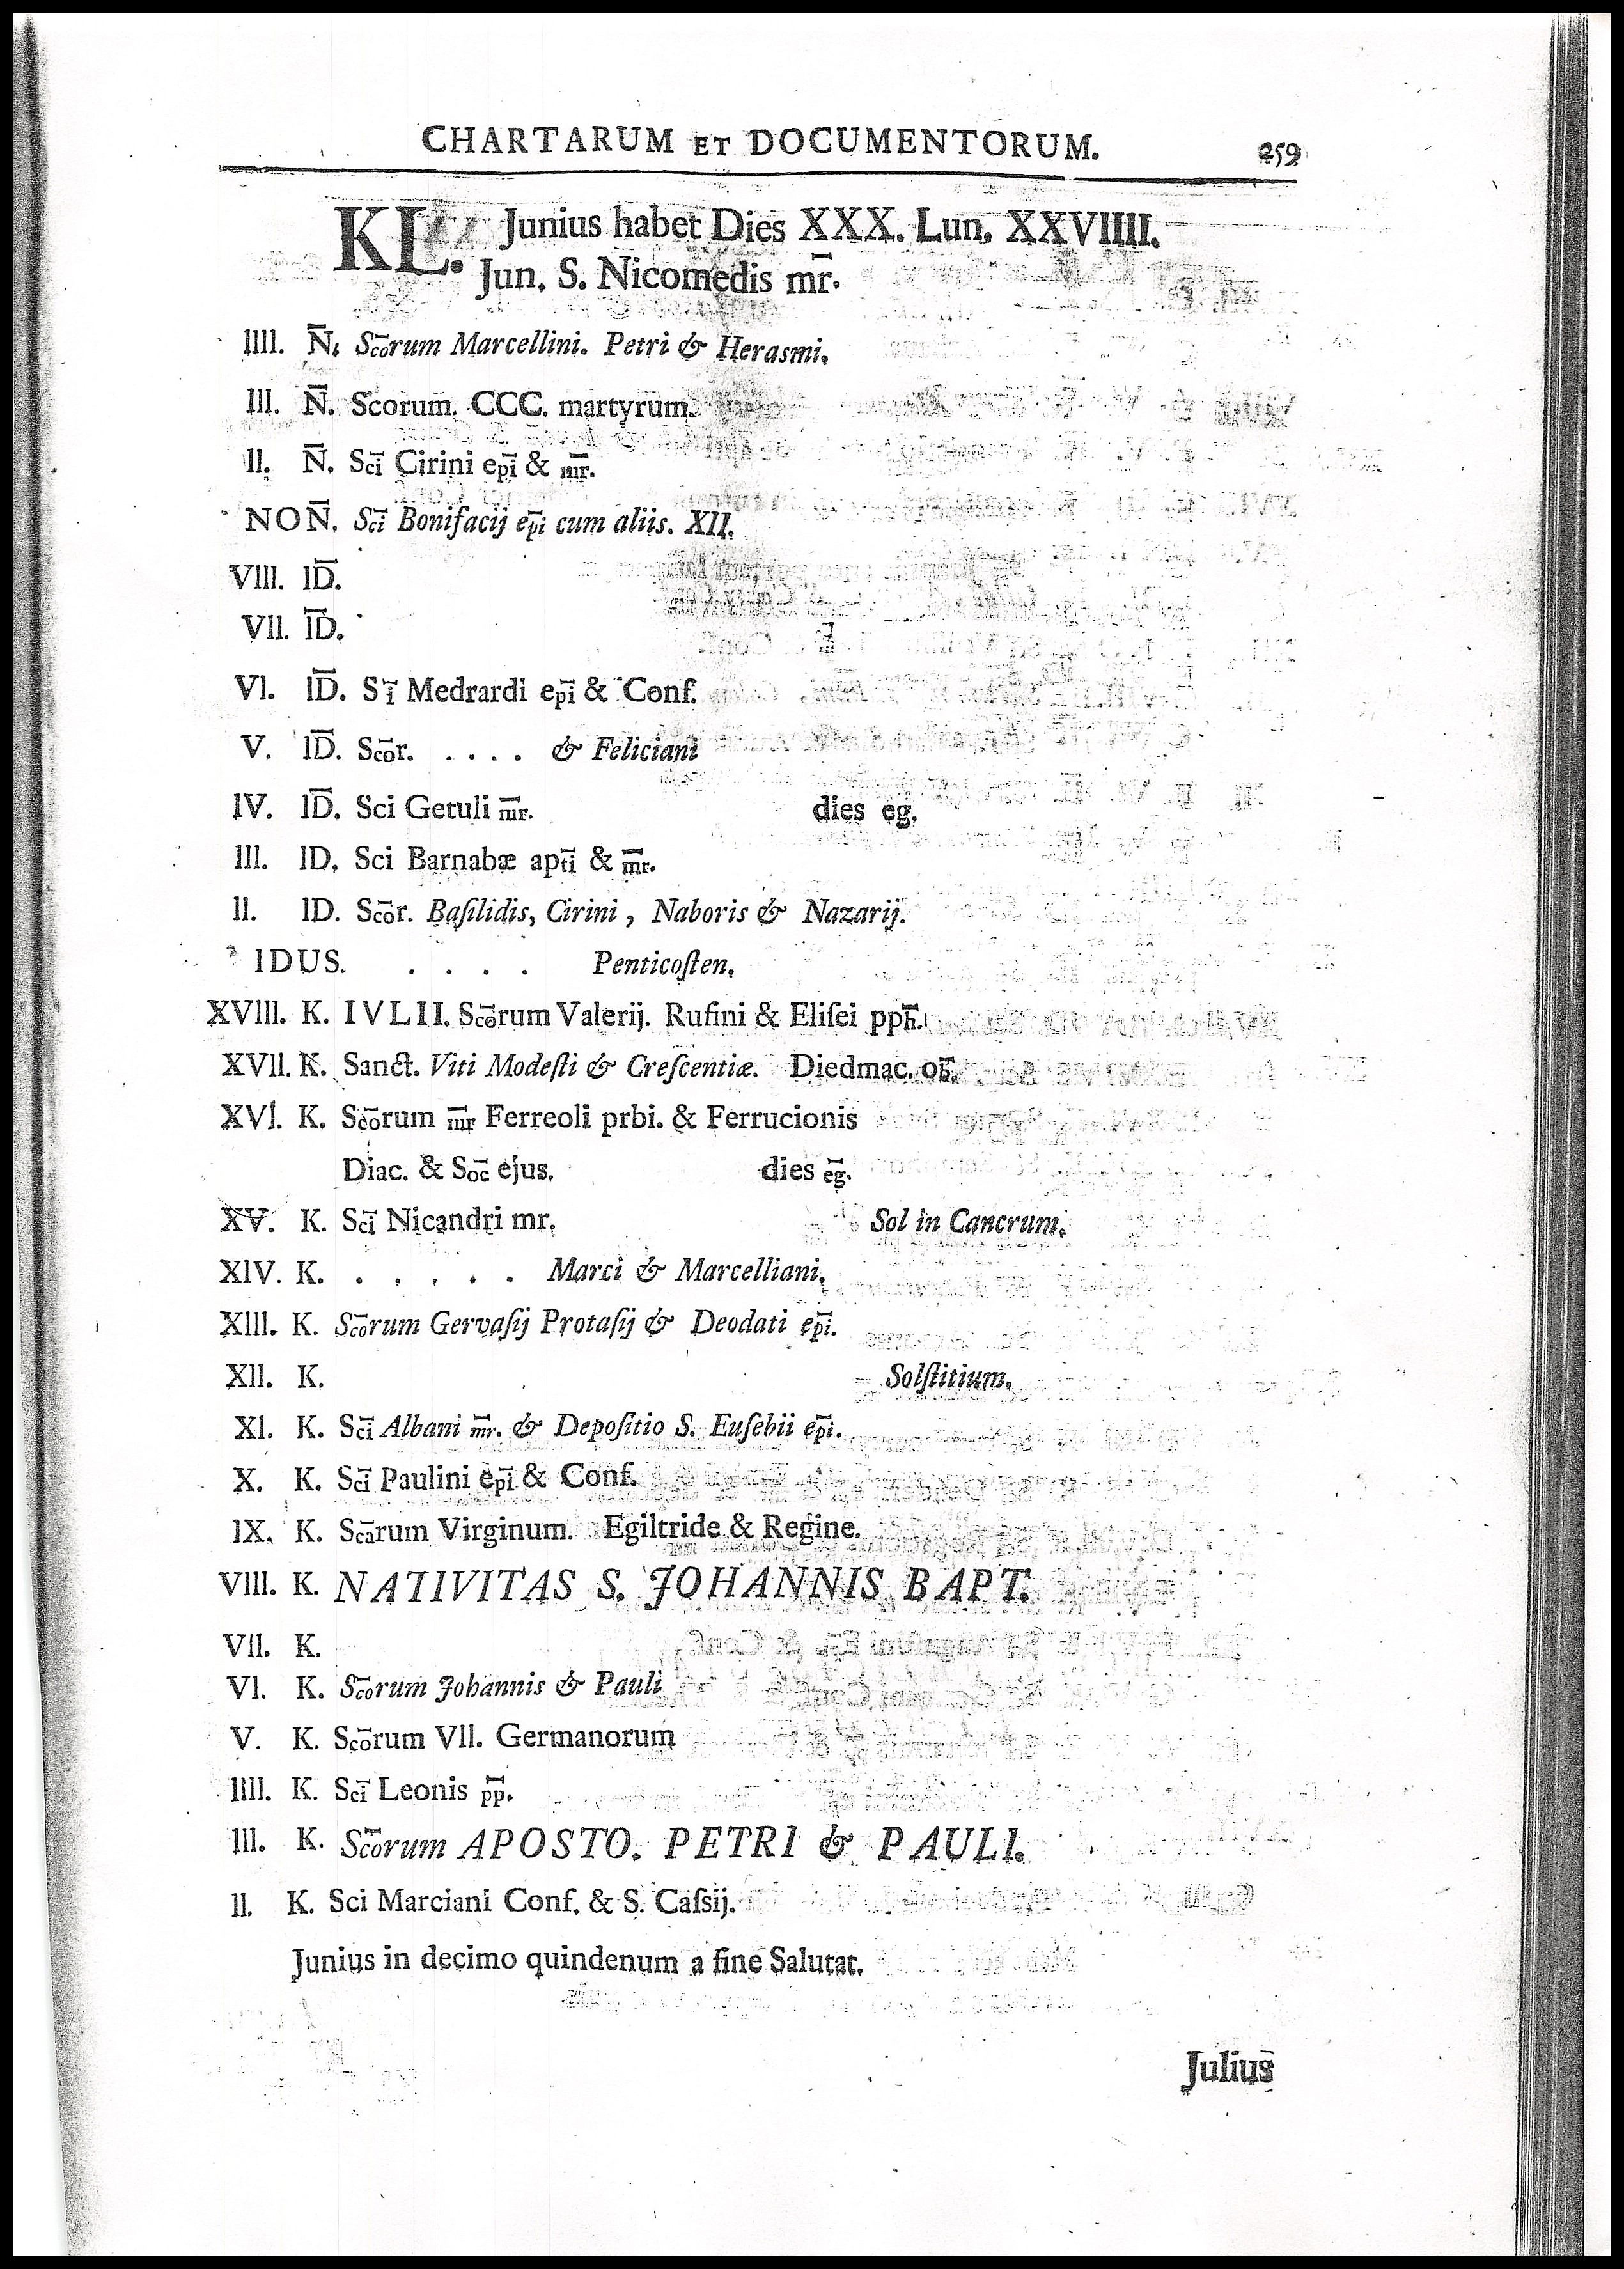 CHARTARUM ET DOCUMENTORUM. 259
KL. Junius habet Dies XXX. Lun. XXVIIII.
Jun. S. Nicomedis mr̅.
IIII. N̅. Sc̅orum Marcellini. Petri & Herasmi.
III. N̅. Scorum̅. CCC. martyrum.
II. N̅. Sci̅ Cirini epi̅ & mr̅.
NON̅. Sci̅ Bonifacij epi̅ cum aliis. XII.
VIII. ID̅.
VII. ID̅.
VI. ID̅. S i̅ Medrardi epi̅ & Conf.
V. ID̅. Sco̅r. . . . . & Feliciani
IV. ID̅. Sci Getuli mr̅. dies eg.
III. ID. Sci Barnabæ apti̅ & mr̅.
II. ID. Sco̅r. Baſilidis, Cirini, Naboris & Nazarij.
IDUS. . . . . Penticoſten.
XVIII. K. IVLII. Sco̅rum Valerij. Rufini & Eliſei pph̅.
XVII. K. Sanct. Viti Modeſti & Creſcentiæ. Diedmac. ob̅.
XVI. K. Sco̅rum mr̅ Ferreoli prbi. & Ferrucionis
Diac. & Soc̅ ejus. dies eg̅.
XV. K. Sci̅ Nicandri mr. Sol in Cancrum.
XIV. K. . . . . . Marci & Marcelliani.
XIII. K. Sco̅rum Gervaſij Protaſij & Deodati epi̅.
XII. K. Solſtitium.
XI. K. Sci̅ Albani mr̅. & Depoſitio S. Euſebii epi̅.
X. K. Sci̅ Paulini epi̅ & Conf.
IX. K. Sca̅rum Virginum. Egiltride & Regine.
VIII. K. NATIVITAS S. JOHANNIS BAPT.
VII. K.
VI. K. Sco̅rum Johannis & Pauli
V. K. Sco̅rum VII. Germanorum
IIII. K. Sci̅ Leonis pp̅.
III. K. Sco̅rum APOSTO. PETRI & PAULI.
II. K. Sci Marciani Conf. & S. Caſsij.
Junius in decimo quindenum a fine Salutat.
Julius